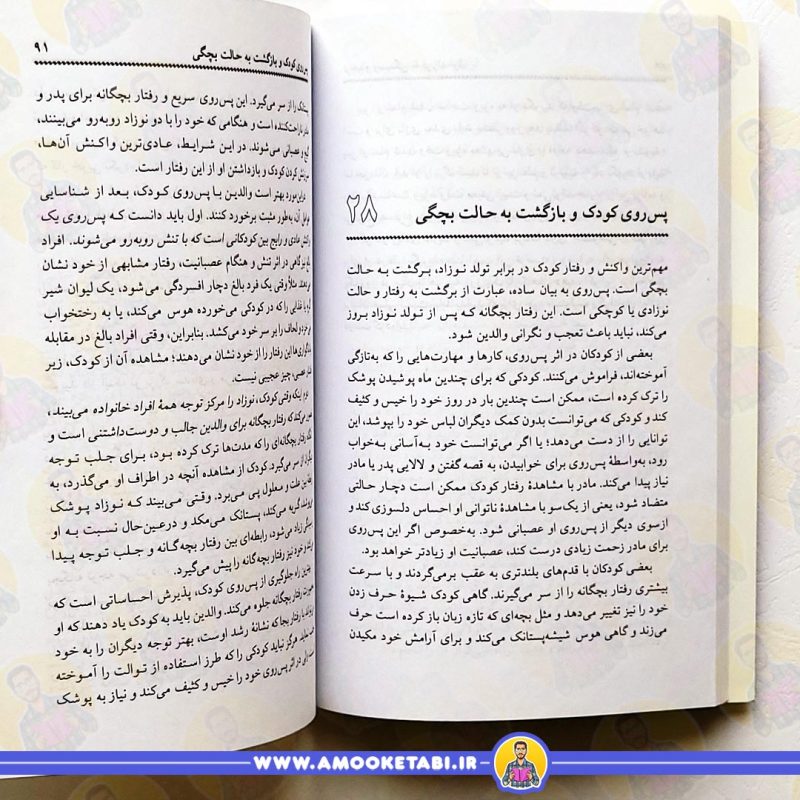 ۲۸
پس‌روی کودک و بازگشت به حالت بچگی
مهم‌ترین واکنش و رفتار کودک در برابر تولد نوزاد، برگشت به حالت
بچگی است. پس‌روی به بیان ساده، عبارت از برگشت به رفتار و حالت
نوزادی یا کوچکی است. این رفتار بچگانه که پس از تولد نوزاد بروز
می‌کند، نباید باعث تعجب و نگرانی والدین شود.
بعضی از کودکان در اثر پس‌روی، کارها و مهارت‌هایی را که به‌تازگی
آموخته‌اند، فراموش می‌کنند. کودکی که برای چندین ماه پوشیدن پوشک
را ترک کرده است، ممکن است چندین بار در روز خود را خیس و کثیف
کند و کودکی که می‌توانست بدون کمک دیگران لباس خود را بپوشد، این
توانایی را از دست می‌دهد؛ یا اگر می‌توانست خود به‌آسانی به‌خواب
رود، به‌واسطهٔ پس‌روی برای خوابیدن، به قصه گفتن و لالایی پدر یا مادر
نیاز پیدا می‌کند. مادر با مشاهدهٔ رفتار کودک ممکن است دچار حالتی
متضاد شود، یعنی از یک‌سو با مشاهدهٔ ناتوانی او احساس دلسوزی کند و
ازسوی دیگر از پس‌روی او عصبانی شود. به‌خصوص اگر این پس‌روی
برای مادر زحمت زیادی درست کند، عصبانیت او زیادتر خواهد بود.
بعضی کودکان با قدم‌های بلندتری به عقب برمی‌گردند و با سرعت
بیشتری رفتار بچگانه را از سر می‌گیرند. گاهی کودک شیوهٔ حرف زدن
خود را نیز تغییر می‌دهد و مثل بچه‌ای که تازه زبان باز کرده است حرف
می‌زند و گاهی هوس شیشه‌پستانک می‌کند و برای آرامش خود مکیدن
پس‌روی کودک و بازگشت به حالت بچگی ۹۱
را از سر می‌گیرد. این پس‌روی سریع و رفتار بچگانه برای پدر و
است و هنگامی که خود را با دو نوزاد روبه‌رو می‌بینند،
و عصبانی می‌شوند. در این شرایط، عادی‌ترین واکنش آن‌ها،
کردن کودک و بازداشتن او از این رفتار است.
مورد بهتر است والدین با پس‌روی کودک، بعد از شناسایی
آن، به‌طور مثبت برخورد کنند. اول باید دانست که پس‌روی یک
عادی و رایج بین کودکانی است که با تنش روبه‌رو می‌شوند. افراد
نیز گاهی در اثر تنش و هنگام عصبانیت، رفتار مشابهی از خود نشان
مثلاً وقتی یک فرد بالغ دچار افسردگی می‌شود، یک لیوان شیر
یا غذایی را که در کودکی می‌خورده هوس می‌کند، یا به رختخواب
و لحاف را بر سر خود می‌کشد. بنابراین، وقتی افراد بالغ در مقابله
این رفتار را از خود نشان می‌دهند؛ مشاهده آن از کودک، زیر
عصبی، چیز عجیبی نیست.
اینکه وقتی کودک، نوزاد را مرکز توجه همهٔ افراد خانواده می‌بیند،
می‌کند که رفتار بچگانه برای والدین جالب و دوست‌داشتنی است و
رفتار بچگانه‌ای را که مدت‌ها ترک کرده بود، برای جلب توجه
از سر می‌گیرد. کودک از مشاهده آنچه در اطراف او می‌گذرد، به
بین علت و معلول پی می‌برد. وقتی می‌بیند که نوزاد پوشک
گریه می‌کند، پستانک می‌مکد و درعین‌حال نسبت به او
زیاد می‌شود، رابطه‌ای بین رفتار بچه‌گانه و جلب توجه پیدا
و خود نیز رفتار بچه‌گانه را پیش می‌گیرد.
راه جلوگیری از پس‌روی کودک، پذیرش احساساتی است که
رفتار بچگانه جلوه می‌کند. والدین باید به کودک یاد دهند که او
با رفتار بجا که نشانهٔ رشد اوست، بهتر توجه دیگران را به خود
هرگز نباید کودکی را که طرز استفاده از توالت را آموخته
در اثر پس‌روی خود را خیس و کثیف می‌کند و نیاز به پوشک
WWW.AMOOKETABI.IR